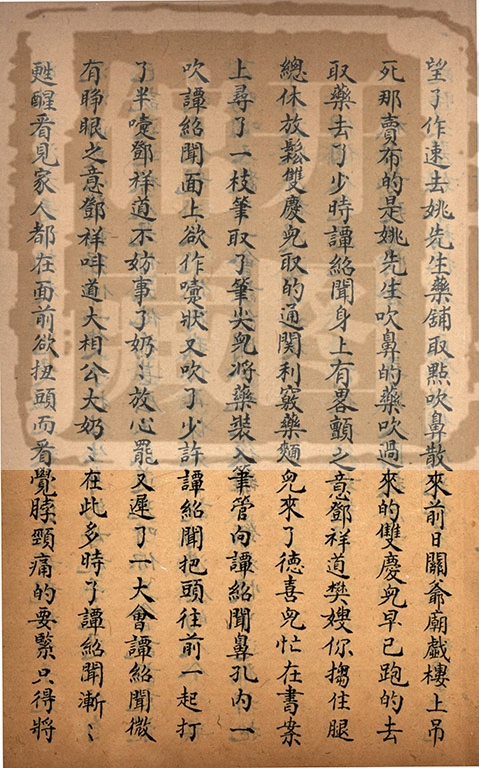 望了作速去姚先生藥舖取點吹鼻散來前日關爺廟戲樓上吊
死那賣布的是姚先生吹鼻的藥吹過來的雙慶兒早已跑的去
取藥去了少時譚紹聞身上有畧顫之意鄧祥道樊嫂你搊住腿
總休放鬆雙慶兒取的通関利竅藥麵兒來了德喜兒忙在書案
上尋了一枝筆取了筆尖兒將藥裝入筆管向譚紹聞鼻孔內一
吹譚紹聞面上欲作嚏狀又吹了少許譚紹聞把頭往前一起打
了半嚏鄧祥道不妨事了奶奶放心罷又遲了一大會譚紹聞微
有睜眼之意鄧祥呌道大相公大奶奶在此多時了譚紹聞漸漸
甦醒看見家人都在面前欲扭頭而看覺脖頸痛的要緊只得將